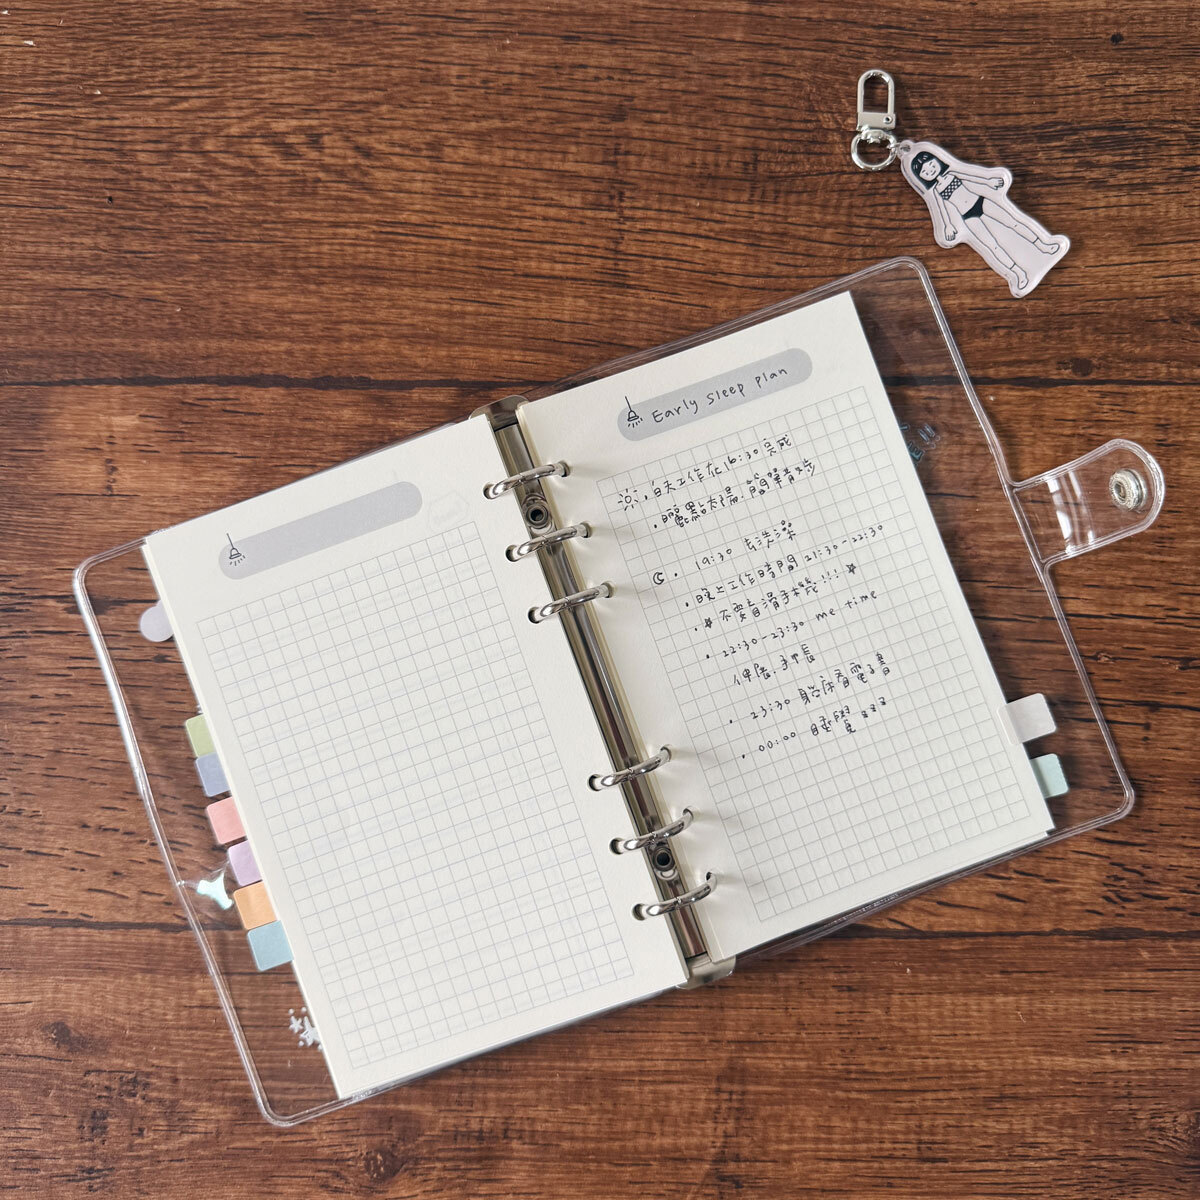 Early Sleep Plan
· 白天工作在16:30完成
· 曬點太陽、簡單散步
· 19:30 去洗澡
· 晚上工作時間 21:30-22:30
· ☆ 不要盲滑手機!!! ☆
· 22:30-23:30 me time
伸展、手帳
· 23:30 躺床看電子書
· 00:00 睡覺 zzz